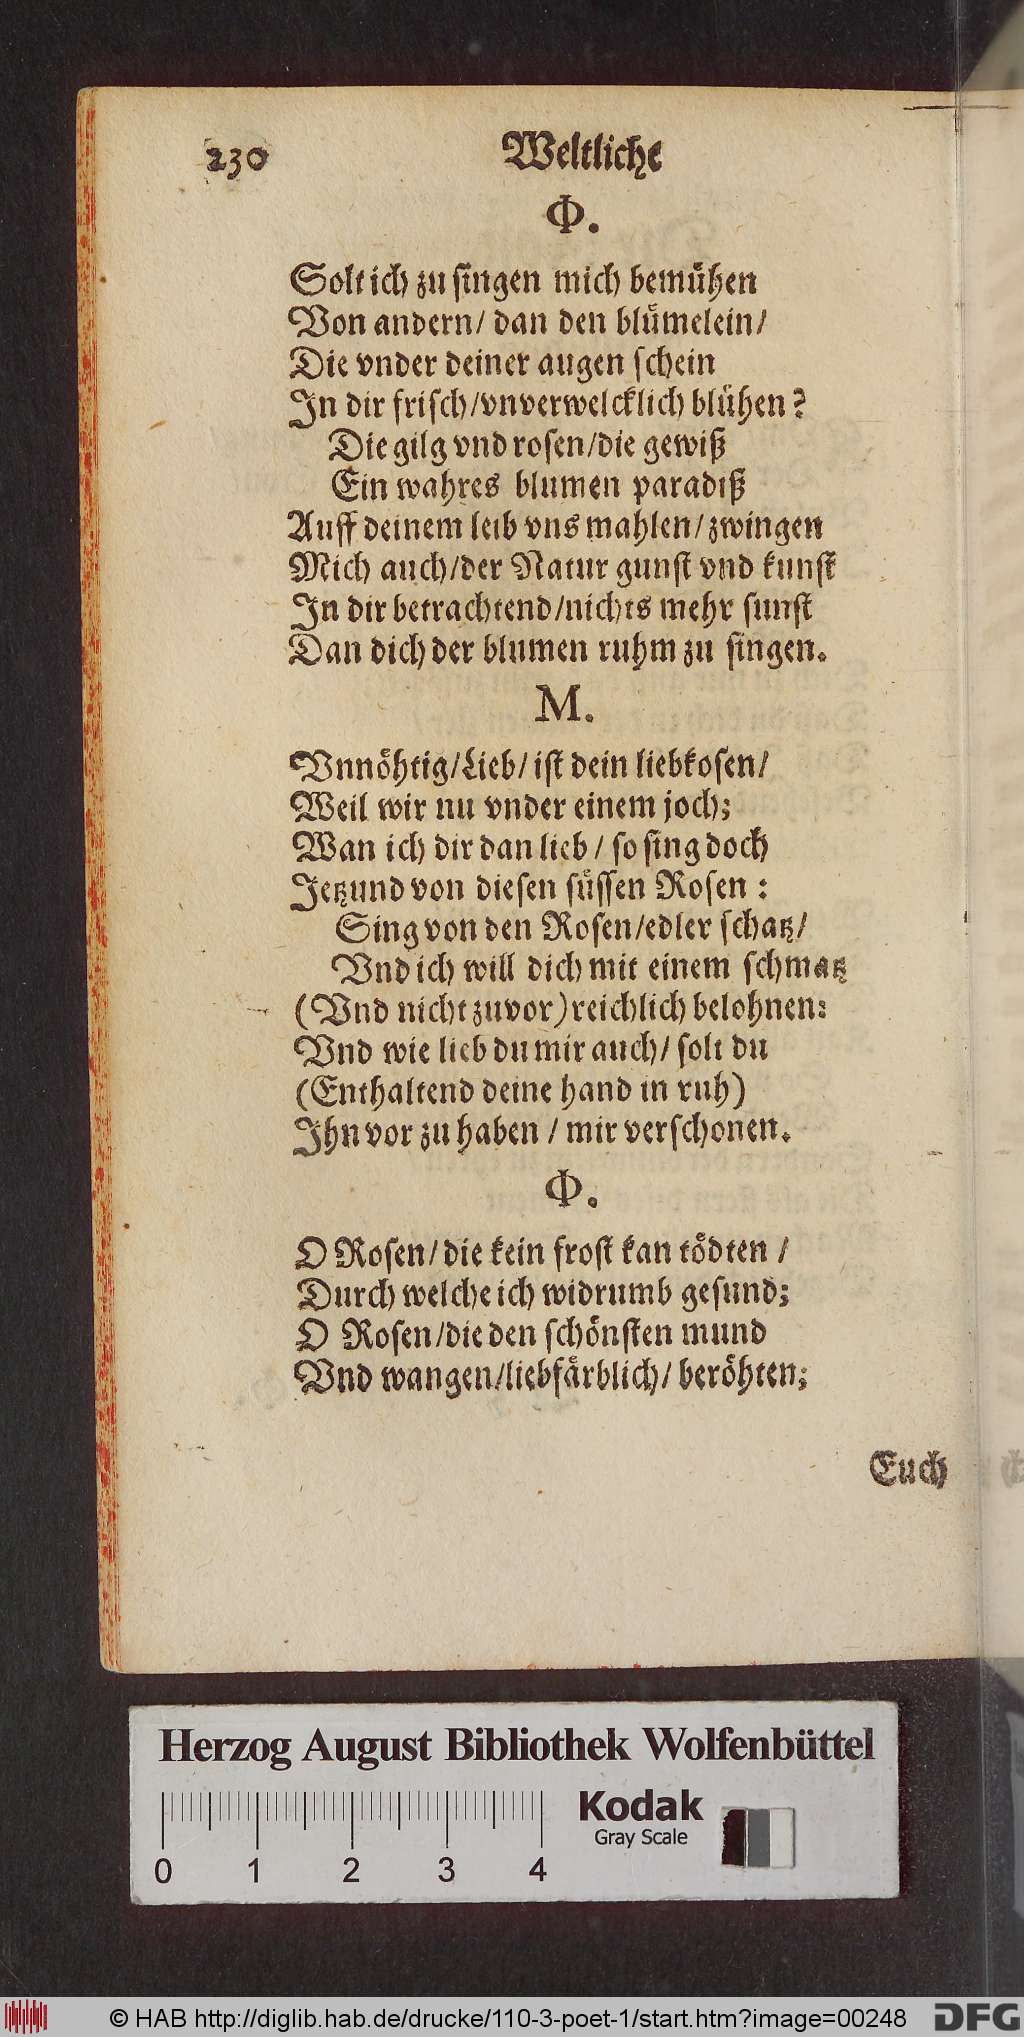 230 Weltliche
Φ.
Solt ich zu singen mich bemühen
Von andern/ dan den blümelein/
Die vnder deiner augen schein
In dir frisch/vnverwelcklich blühen?
Die gilg vnd rosen/die gewiß
Ein wahres blumen paradiß
Auff deinem leib vns mahlen/zwingen
Mich auch/der Natur gunst vnd kunst
In dir betrachtend/nichts mehr sunst
Dan dich der blumen ruhm zu singen.
M.
Vnnöhtig/Lieb/ ist dein liebkosen/
Weil wir nu vnder einem joch;
Wan ich dir dan lieb / so sing doch
Jetzund von diesen süssen Rosen :
Sing von den Rosen/edler schatz/
Vnd ich will dich mit einem schmatz
(Vnd nicht zuvor) reichlich belohnen:
Vnd wie lieb du mir auch/ solt du
(Enthaltend deine hand in ruh)
Ihn vor zu haben / mir verschonen.
Φ.
O Rosen/die kein frost kan tödten /
Durch welche ich widrumb gesund;
O Rosen/die den schönsten mund
Vnd wangen/liebfärblich/ beröhten;
Euch
Herzog August Bibliothek Wolfenbüttel
Kodak
Gray Scale
0 1 2 3 4
© HAB http://diglib.hab.de/drucke/110-3-poet-1/start.htm?image=00248 DFG